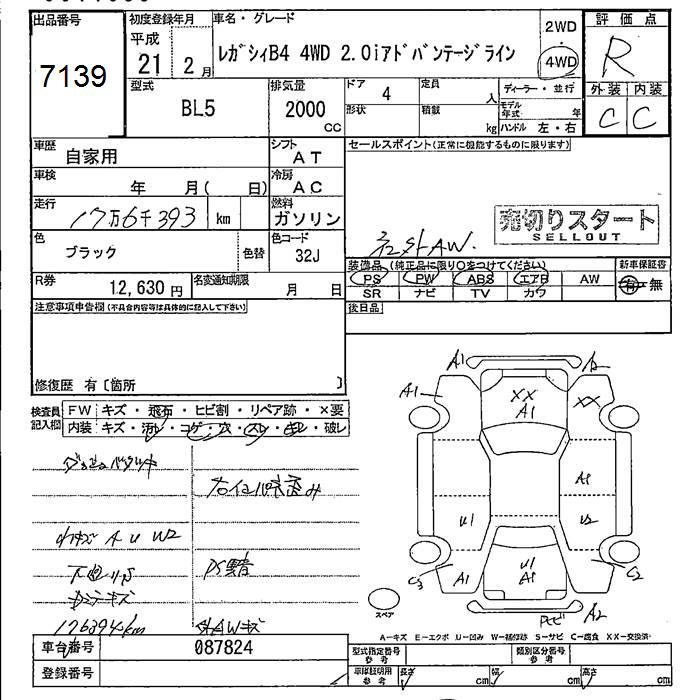 出品番号
7139
初度登録年月
平成
21 2 月
車名・グレード
レガシィB4 4WD 2.0iアドバンテージライン
2WD
・
4WD
評価点
R
外装 内装
C C
型式
BL5
排気量
2000
CC
ドア
4
定員
人
形状
積載
kg
ディーラー・並行
モデル年式 年
ハンドル 左・右
車歴
自家用
シフト
AT
セールスポイント(正常に機能するものに限ります)
車検
年 月( 日)
冷房
AC
走行
17万6千393 km
燃料
ガソリン
売切りスタート
SELLOUT
社外AW.
色
ブラック
色替
色コード
32J
装備品 (純正品に限り○をつけてください)
新車保証書
PS PW ABS エアB AW
有・無
SR ナビ TV カワ
R券
12,630 円
名変通知期限
月 日
後日品
注意事項申告欄(不具合内容等は具体的に記入して下さい)
修復歴 有〔箇所 〕
検査員記入欄
FW キズ・飛石・ヒビ割・リペア跡・×要
内装 キズ・汚レ・コゲ・穴・スレ・凹ミ・破レ
A1
A1
XX
A1
XX
A1
U1
U2
C3
A1
U1
A1
C2
A2
スペア
176394km
A-キズ E-エクボ U-凹み W-補修跡 S-サビ C-腐食 XX-交換済
車台番号
087824
登録番号
型式指定番号
参考
類別区分番号
参考
車庫証明用
参考
長さ cm 幅 cm 高さ cm